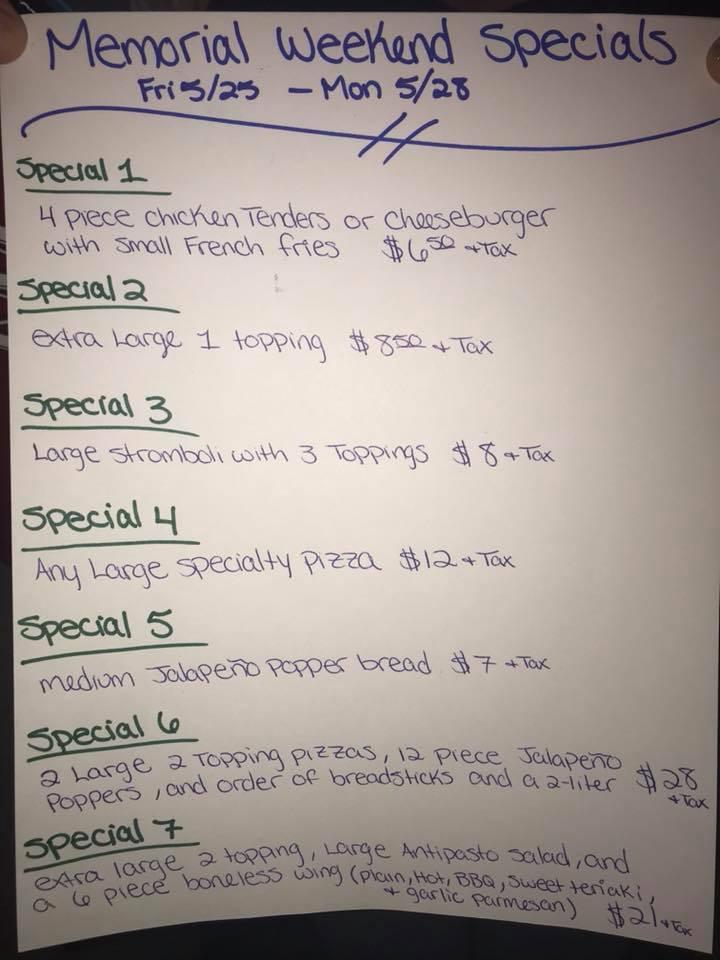 Memorial Weekend Specials
Fri 5/25 - Mon 5/28
Special 1
4 piece chicken Tenders or Cheeseburger
with small French fries $6.50 + Tax
Special 2
extra Large 1 topping $8.50 + Tax
Special 3
Large Stromboli with 3 Toppings $8 + Tax
Special 4
Any Large Specialty Pizza $12 + Tax
Special 5
medium Jalapeño Popper bread $7 + Tax
Special 6
2 Large 2 Topping pizzas, 12 piece Jalapeño
Poppers, and order of breadsticks and a 2-liter $28
+ Tax
Special 7
extra large 2 topping, Large Antipasto Salad, and
a 6 piece boneless wing (Plain, Hot, BBQ, Sweet teriaki,
+ garlic parmesan) $21 + Tax